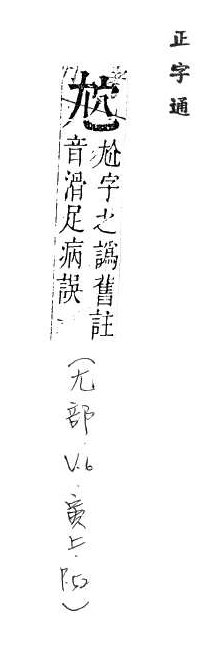 正字通
尬字之譌舊註
音滑足病誤
(尢部 V.6 寅上 P.52)